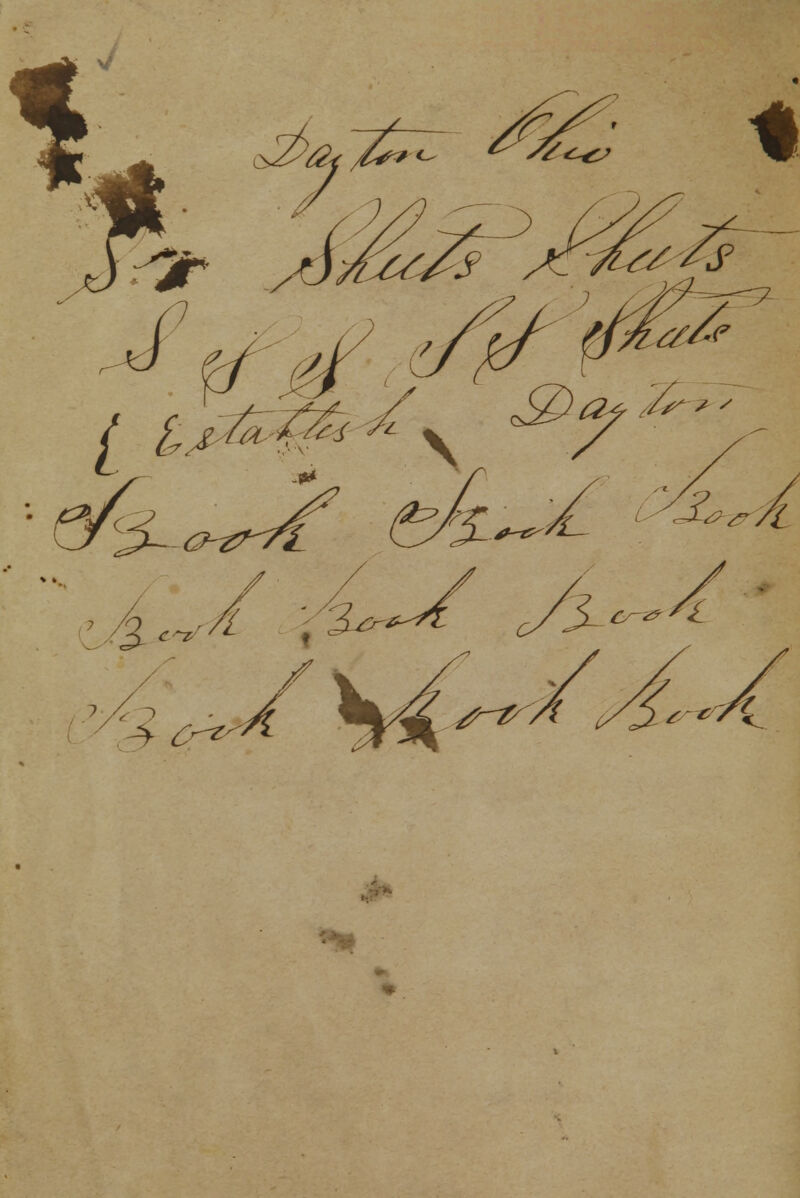 Dayton Ohio
S Shuts Shuts
S S S S S Shuts
{ Establish Dayton
Book Book Book
Book Book Book
Book Book Book